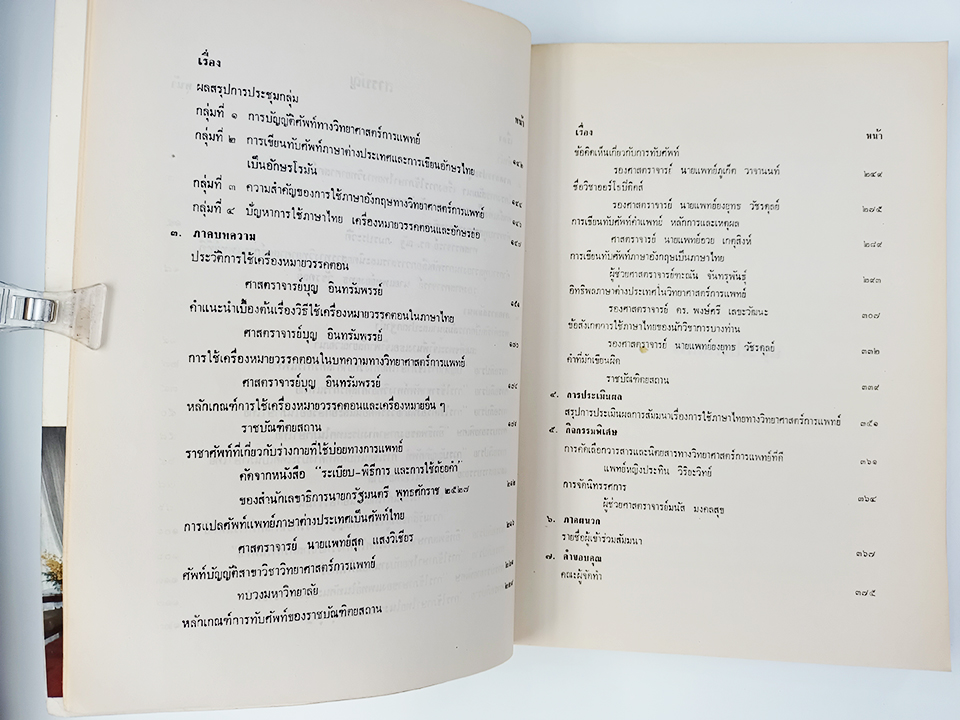 เรื่อง
หน้า
ผลสรุปการประชุมกลุ่ม
กลุ่มที่ ๑ การบัญญัติศัพท์ทางวิทยาศาสตร์การแพทย์
กลุ่มที่ ๒ การเขียนทับศัพท์ภาษาต่างประเทศและการเขียนอักษรไทย
เป็นอักษรโรมัน
กลุ่มที่ ๓ ความสำคัญของการใช้ภาษาอังกฤษทางวิทยาศาสตร์การแพทย์
กลุ่มที่ ๔ ปัญหาการใช้ภาษาไทย เครื่องหมายวรรคตอนและอักษรย่อ
๓. ภาคบทความ
ประวัติการใช้เครื่องหมายวรรคตอน
ศาสตราจารย์บุญ อินทรัมพรรย์
คำแนะนำเบื้องต้นเรื่องวิธีใช้เครื่องหมายวรรคตอนในภาษาไทย
ศาสตราจารย์บุญ อินทรัมพรรย์
การใช้เครื่องหมายวรรคตอนในบทความทางวิทยาศาสตร์การแพทย์
ศาสตราจารย์บุญ อินทรัมพรรย์
หลักเกณฑ์การใช้เครื่องหมายวรรคตอนและเครื่องหมายอื่น ๆ
ราชบัณฑิตยสถาน
ราชาศัพท์ที่เกี่ยวกับร่างกายที่ใช้บ่อยทางการแพทย์
คัดจากหนังสือ "ระเบียบ-พิธีการ และการใช้ถ้อยคำ"
ของสำนักเลขาธิการนายกรัฐมนตรี พุทธศักราช ๒๕๒๗
การแปลศัพท์แพทย์ภาษาต่างประเทศเป็นศัพท์ไทย
ศาสตราจารย์ นายแพทย์สุด แสงวิเชียร
ศัพท์บัญญัติสาขาวิชาวิทยาศาสตร์การแพทย์
ทบวงมหาวิทยาลัย
หลักเกณฑ์การทับศัพท์ของราชบัณฑิตยสถาน
เรื่อง หน้า
ข้อคิดเห็นเกี่ยวกับการทับศัพท์
รองศาสตราจารย์ นายแพทย์ภูเก็ต วาจานนท์ ๒๔๙
ชื่อวิชาออร์โธปิดิคส์
รองศาสตราจารย์ นายแพทย์ยงยุทธ วัชรดุลย์ ๒๗๕
การเขียนทับศัพท์คำแพทย์ หลักการและเหตุผล
ศาสตราจารย์ นายแพทย์อวย เกตุสิงห์ ๒๘๙
การเขียนทับศัพท์ภาษาอังกฤษเป็นภาษาไทย
ผู้ช่วยศาสตราจารย์ทะณัน จันทรุพันธุ์ ๒๙๓
อิทธิพลภาษาต่างประเทศในวิทยาศาสตร์การแพทย์
รองศาสตราจารย์ ดร. พงษ์ศรี เลขะวัฒนะ ๓๐๗
ข้อสังเกตการใช้ภาษาไทยของนักวิชาการบางท่าน
รองศาสตราจารย์ นายแพทย์ยงยุทธ วัชรดุลย์ ๓๓๒
คำที่มักเขียนผิด
ราชบัณฑิตยสถาน ๓๓๙
๔. การประเมินผล
สรุปการประเมินผลการสัมมนาเรื่องการใช้ภาษาไทยทางวิทยาศาสตร์การแพทย์ ๓๕๑
๕. กิจกรรมพิเศษ
การคัดเลือกวารสารและนิตยสารทางวิทยาศาสตร์การแพทย์ที่ดี ๓๖๑
แพทย์หญิงประทิน วิริยะวิทย์
การจัดนิทรรศการ ๓๖๔
ผู้ช่วยศาสตราจารย์มนัส มงคลสุข
๖. ภาคผนวก
รายชื่อผู้เข้าร่วมสัมมนา ๓๖๗
๗. คำขอบคุณ
คณะผู้จัดทำ ๓๗๕